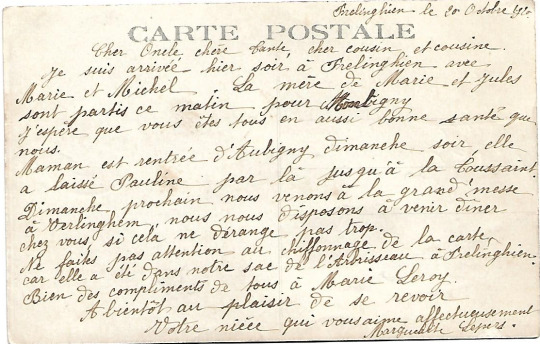 Frelinghien le 20 Octobre
CARTE POSTALE
Cher Oncle chère tante, cher cousin et cousine.
Je suis arrivée hier soir à Frelinghien avec
Marie et Michel La mère de Marie et Jules
sont partis ce matin pour Montigny
J'espère que vous êtes tous en aussi bonne santé que
nous.
Maman est rentrée d'Aubigny dimanche soir, elle
a laissé Pauline par là jusqu'à la Toussaint.
Dimanche prochain nous venons à la grand'messe
à Verlinghem, nous nous disposons à venir diner
chez vous si cela ne dérange pas trop.
Ne faites pas attention au chiffonnage de la carte,
car elle a été dans notre sac de l'Arbrisseau à Frelinghien.
Bien des compliments de tous à Marie Leroy.
A bientôt au plaisir de se revoir
Votre nièce qui vous aime affectueusement
Marguerite Lepers.